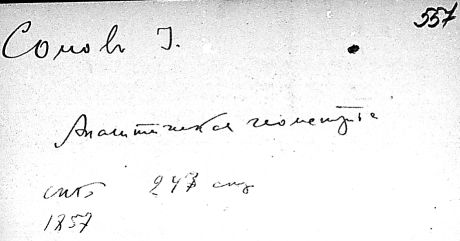 557
Сомов І.
Аналитическая геометрія
СПБ 247 стр
1857